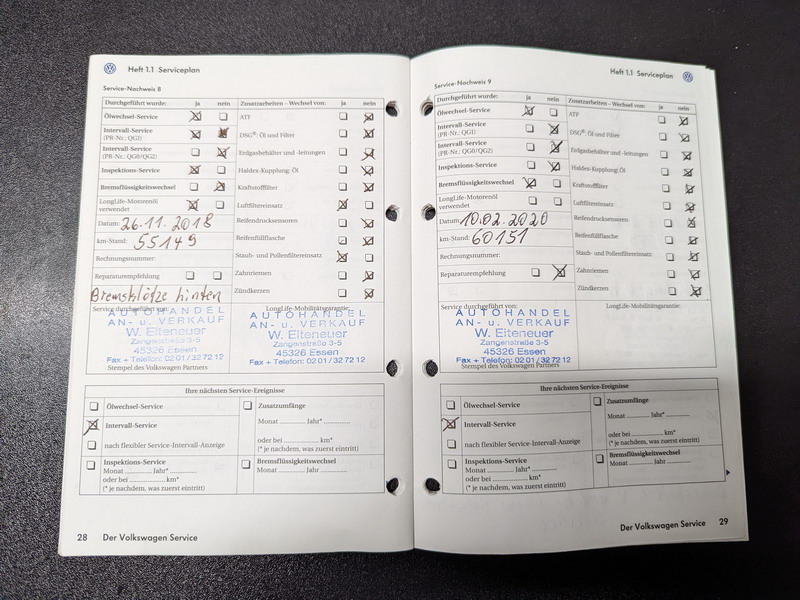 Heft 1.1 Serviceplan
Service-Nachweis 8
Durchgeführt wurde: ja nein
Ölwechsel-Service
Intervall-Service
(PR-Nr.: QG1)
Intervall-Service
(PR-Nr.: QG0/QG2)
Inspektions-Service
Bremsflüssigkeitswechsel
LongLife-Motorenöl
verwendet
Datum: 26.11.2018
km-Stand: 55149
Rechnungsnummer:
Reparaturempfehlung
Bremsklötze hinten
Zusatzarbeiten – Wechsel von: ja nein
ATF
DSG®: Öl und Filter
Erdgasbehälter und -leitungen
Haldex-Kupplung: Öl
Kraftstofffilter
Luftfiltereinsatz
Reifendrucksensoren
Reifenfüllflasche
Staub- und Pollenfiltereinsatz
Zahnriemen
Zündkerzen
Service durchgeführt von:
LongLife-Mobilitätsgarantie:
AUTOHANDEL
AN- u. VERKAUF
W. Eiteneuer
Zangenstraße 3-5
45326 Essen
Fax + Telefon: 02 01 / 32 72 12
AUTOHANDEL
AN- u. VERKAUF
W. Eiteneuer
Zangenstraße 3-5
45326 Essen
Fax + Telefon: 02 01 / 32 72 12
Stempel des Volkswagen Partners
Ihre nächsten Service-Ereignisse
Ölwechsel-Service
Intervall-Service
nach flexibler Service-Intervall-Anzeige
Inspektions-Service
Monat ............ Jahr* ............
oder bei ............ km*
(* je nachdem, was zuerst eintritt)
Zusatzumfänge
Monat ............ Jahr* ............
oder bei ............ km*
(* je nachdem, was zuerst eintritt)
Bremsflüssigkeitswechsel
Monat ............ Jahr ............
28 Der Volkswagen Service
Heft 1.1 Serviceplan
Service-Nachweis 9
Durchgeführt wurde: ja nein
Ölwechsel-Service
Intervall-Service
(PR-Nr.: QG1)
Intervall-Service
(PR-Nr.: QG0/QG2)
Inspektions-Service
Bremsflüssigkeitswechsel
LongLife-Motorenöl
verwendet
Datum: 10.02.2020
km-Stand: 60151
Rechnungsnummer:
Reparaturempfehlung
Zusatzarbeiten – Wechsel von: ja nein
ATF
DSG®: Öl und Filter
Erdgasbehälter und -leitungen
Haldex-Kupplung: Öl
Kraftstofffilter
Luftfiltereinsatz
Reifendrucksensoren
Reifenfüllflasche
Staub- und Pollenfiltereinsatz
Zahnriemen
Zündkerzen
Service durchgeführt von:
LongLife-Mobilitätsgarantie:
AUTOHANDEL
AN- u. VERKAUF
W. Eiteneuer
Zangenstraße 3-5
45326 Essen
Fax + Telefon: 02 01 / 32 72 12
Stempel des Volkswagen Partners
Ihre nächsten Service-Ereignisse
Ölwechsel-Service
Intervall-Service
nach flexibler Service-Intervall-Anzeige
Inspektions-Service
Monat ............ Jahr* ............
oder bei ............ km*
(* je nachdem, was zuerst eintritt)
Zusatzumfänge
Monat ............ Jahr* ............
oder bei ............ km*
(* je nachdem, was zuerst eintritt)
Bremsflüssigkeitswechsel
Monat ............ Jahr ............
Der Volkswagen Service 29